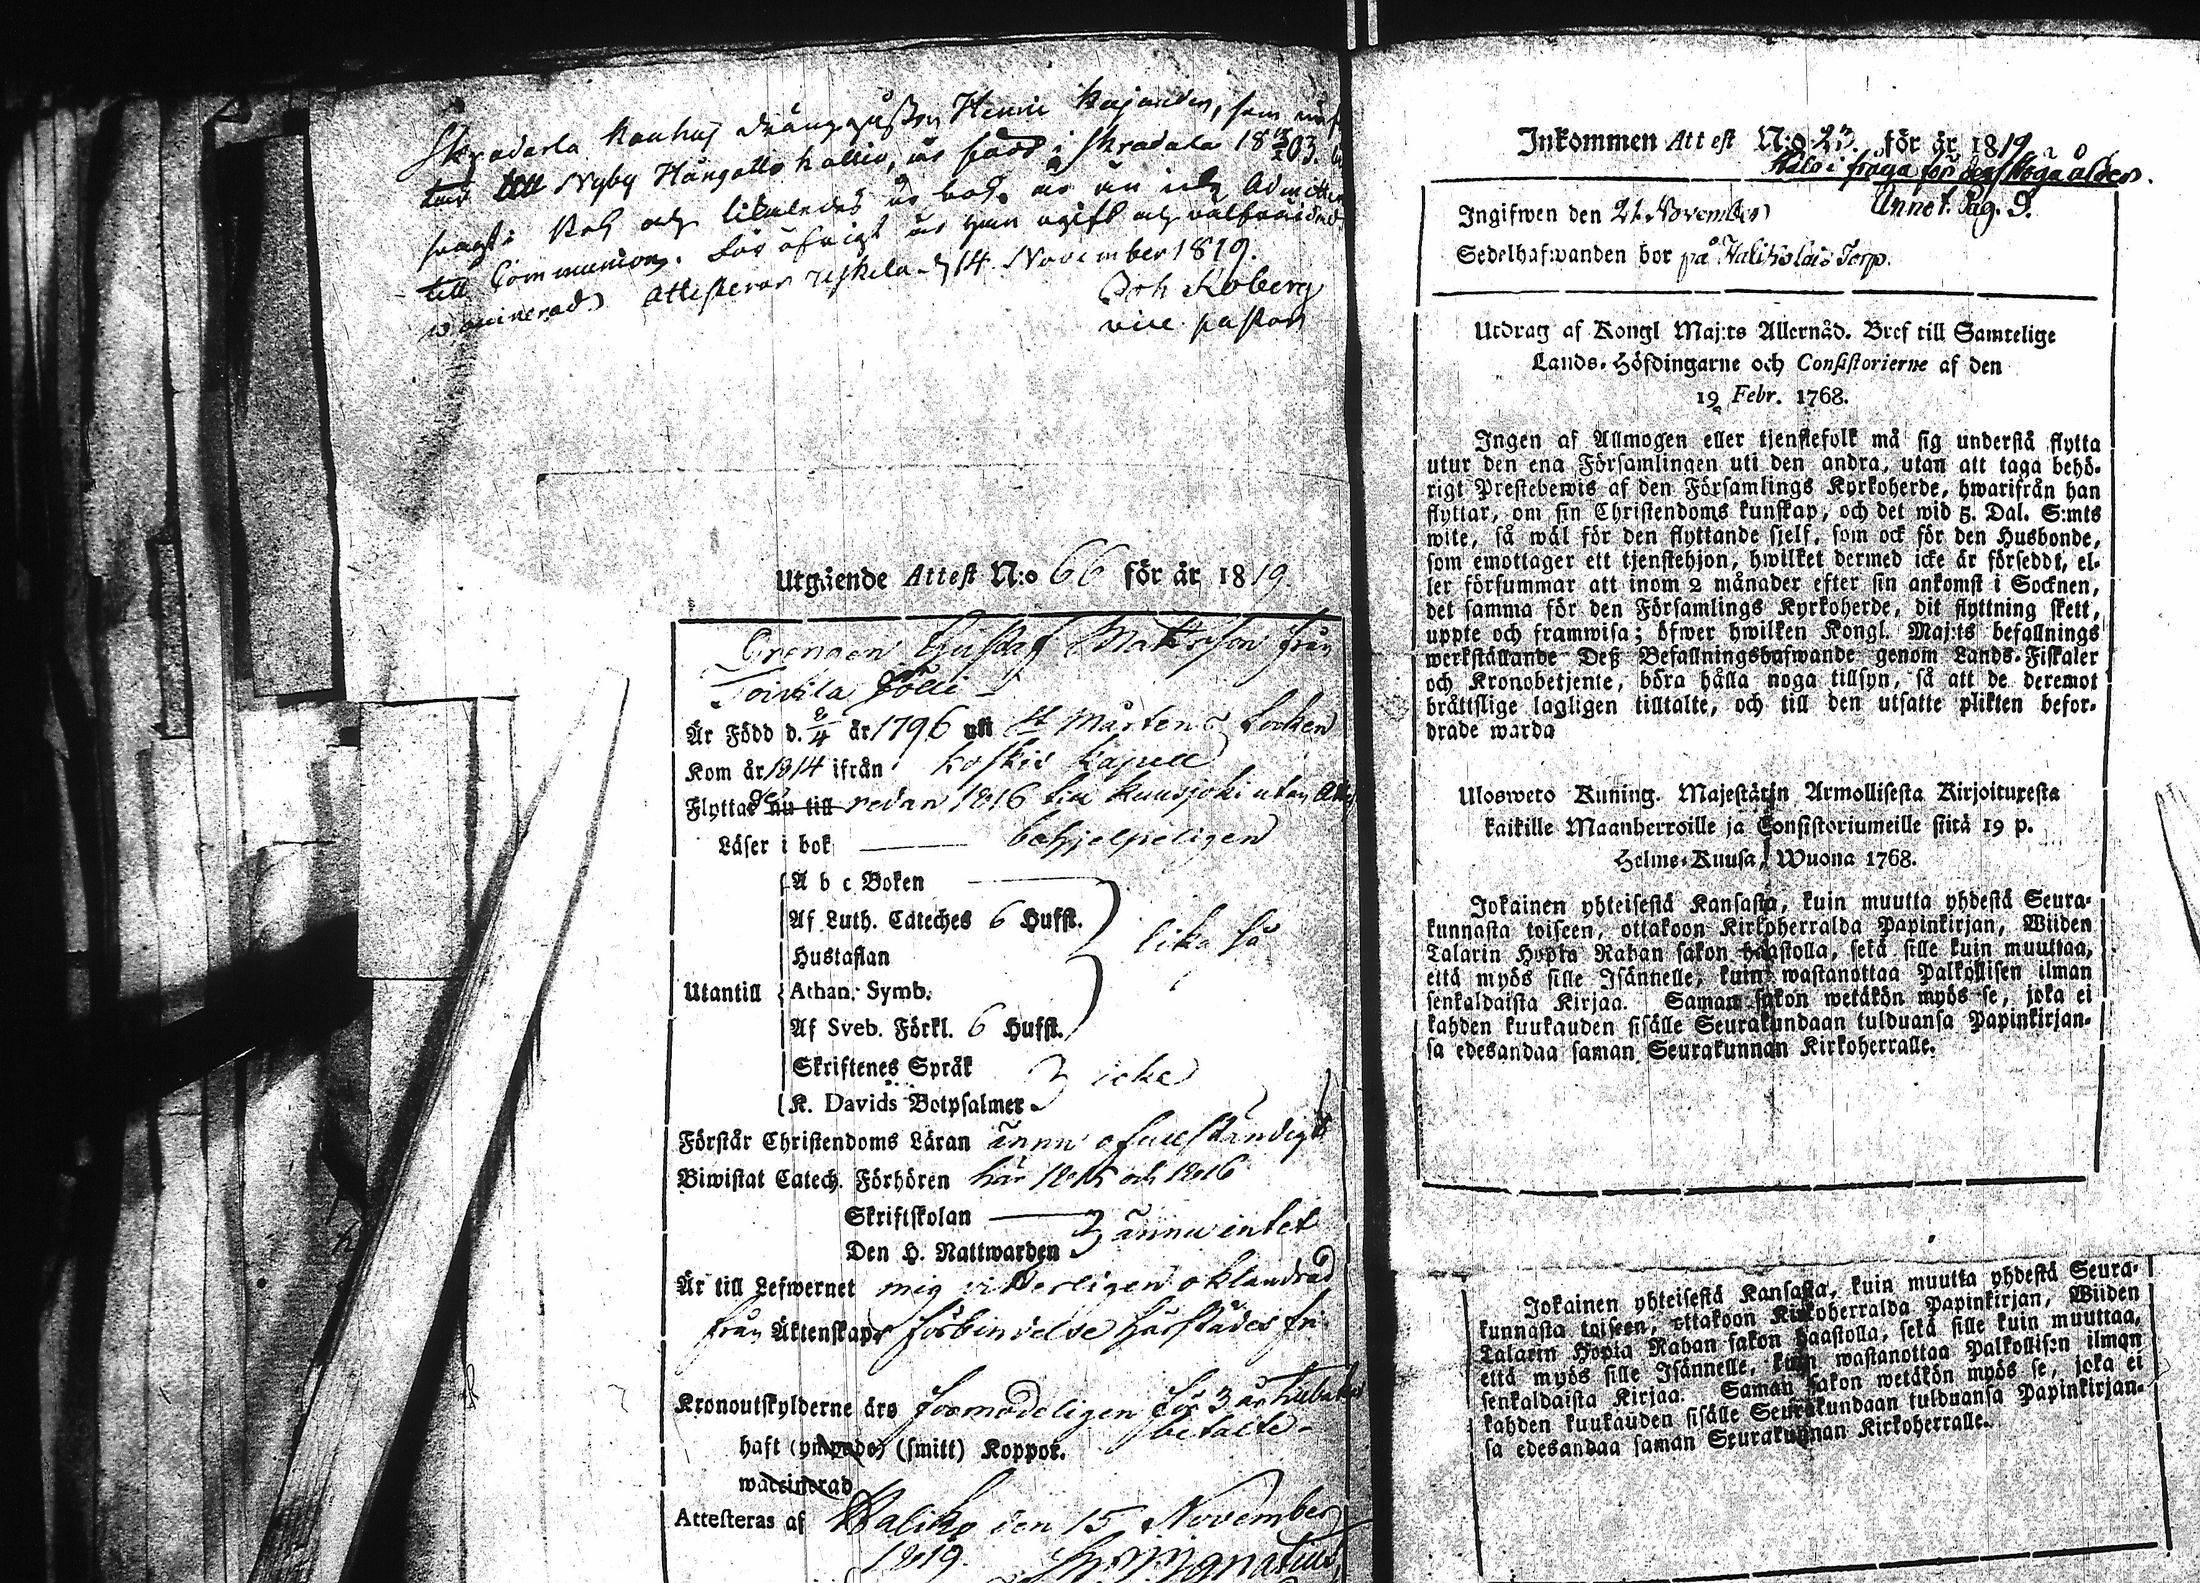 Skradarla Kauhaj drängguβen Henric Kajander, som
till Nyby Hångatto hallis, är född i Skradala 18 3/2 03.
till Communion. För öfrigt är han ogift och välfräjdad
waccinerad attesteras Uskela d 14 November 1819.
Joh Roberg
vice pastor
Utgående Attest N:o 66 för år 1819.
Drengen Gustaf Mattsson från
Toivila Jölli
Är Född d. 8/4 år 1796 uti St Mårtens Socken
Kom år 1814 ifrån Koskis Kapell
Flyttade nu till redan 1816 till Kuusjoki utan Att
Läser i bok behjelpeligen
A b c Boken
Af Luth. Cateches 6 Hufst.
Hustaflan lika så
Utantill Athan. Symb.
Af Sveb. Förkl. 6 Hufst.
Skriftenes Språk icke
K. Davids Botpsalmer
Förstår Christendoms Läran ännu ofullständigt
Biwistat Catech. Förhören här 1815 och 1816
Skriftskolan ännu intet
Den H. Nattwarden
Är till Lefwernet mig vitterligen oklandrad
från Äktenskaps förbindelse härstädes fri
Kronoutskylderne äro förmodeligen för 3 år tillbaka
betalte
haft (ympade) (smitt) Koppor.
waccinerad
Attesteras af Haliko den 15 November
1819. Ignatius
Inkommen Attest N:o 23. för år 1819
Ingifwen den 21 November Annot. Pag. 9.
Sedelhafwanden bor på Torp.
Utdrag af Kongl Maj:ts Allernåd. Bref till Samtelige
Lands-Höfdingarne och Consistorierne af den
19 Febr. 1768.
Ingen af Allmogen eller tjenstefolk må sig understå flytta
utur den ena Församlingen uti den andra, utan att taga behö-
rigt Prestebewis af den Församlings Kyrkoherde, hwarifrån han
flyttar, om sin Christendoms kunskap, och det wid 5. Dal. S:mts
wite, så wäl för den flyttande sjelf, som ock för den Husbonde,
som emottager ett tjenstehjon, hwilket dermed icke är förseddt, el-
ler försummar att inom 2 månader efter sin ankomst i Socknen,
det samma för den Församlings Kyrkoherde, dit flyttning skett,
uppte och framwisa; öfwer hwilken Kongl. Maj:ts befallnings
werkställande Deß Befallningshafwande genom Lands-Fiskaler
och Kronobetjente, böra hålla noga tillsyn, så att de deremot
bråttslige lagligen tilltalte, och till den utsatte plikten befor-
drade warda
Ulosweto Kuning. Majestätin Armollisesta Kirjoituxesta
kaikille Maanherroille ja Consistoriumeille siitä 19 p.
Helme-Kuusa, Wuona 1768.
Jokainen yhteisestä Kansasta, kuin muutta yhdestä Seura-
kunnasta toiseen, ottakoon Kirkoherralda Papinkirjan, Wiiden
Talarin Hopia Rahan sakon haastolla, sekä sille kuin muuttaa,
että myös sille Isännelle, kuin wastanottaa Palkollisen ilman
senkaldaista Kirjaa. Saman sakon wetäkön myös se, joka ei
kahden kuukauden sisälle Seurakundaan tulduansa Papinkirjan-
sa edesandaa saman Seurakunnan Kirkoherralle.
Jokainen yhteisestä Kansasta, kuin muutta yhdestä Seura-
kunnasta toiseen, ottakoon Kirkoherralda Papinkirjan, Wiiden
Talarin Hopia Rahan sakon haastolla, sekä sille kuin muuttaa,
että myös sille Isännelle, kuin wastanottaa Palkollisen ilman
senkaldaista Kirjaa. Saman sakon wetäkön myös se, joka ei
kahden kuukauden sisälle Seurakundaan tulduansa Papinkirjan-
sa edesandaa saman Seurakunnan Kirkoherralle.